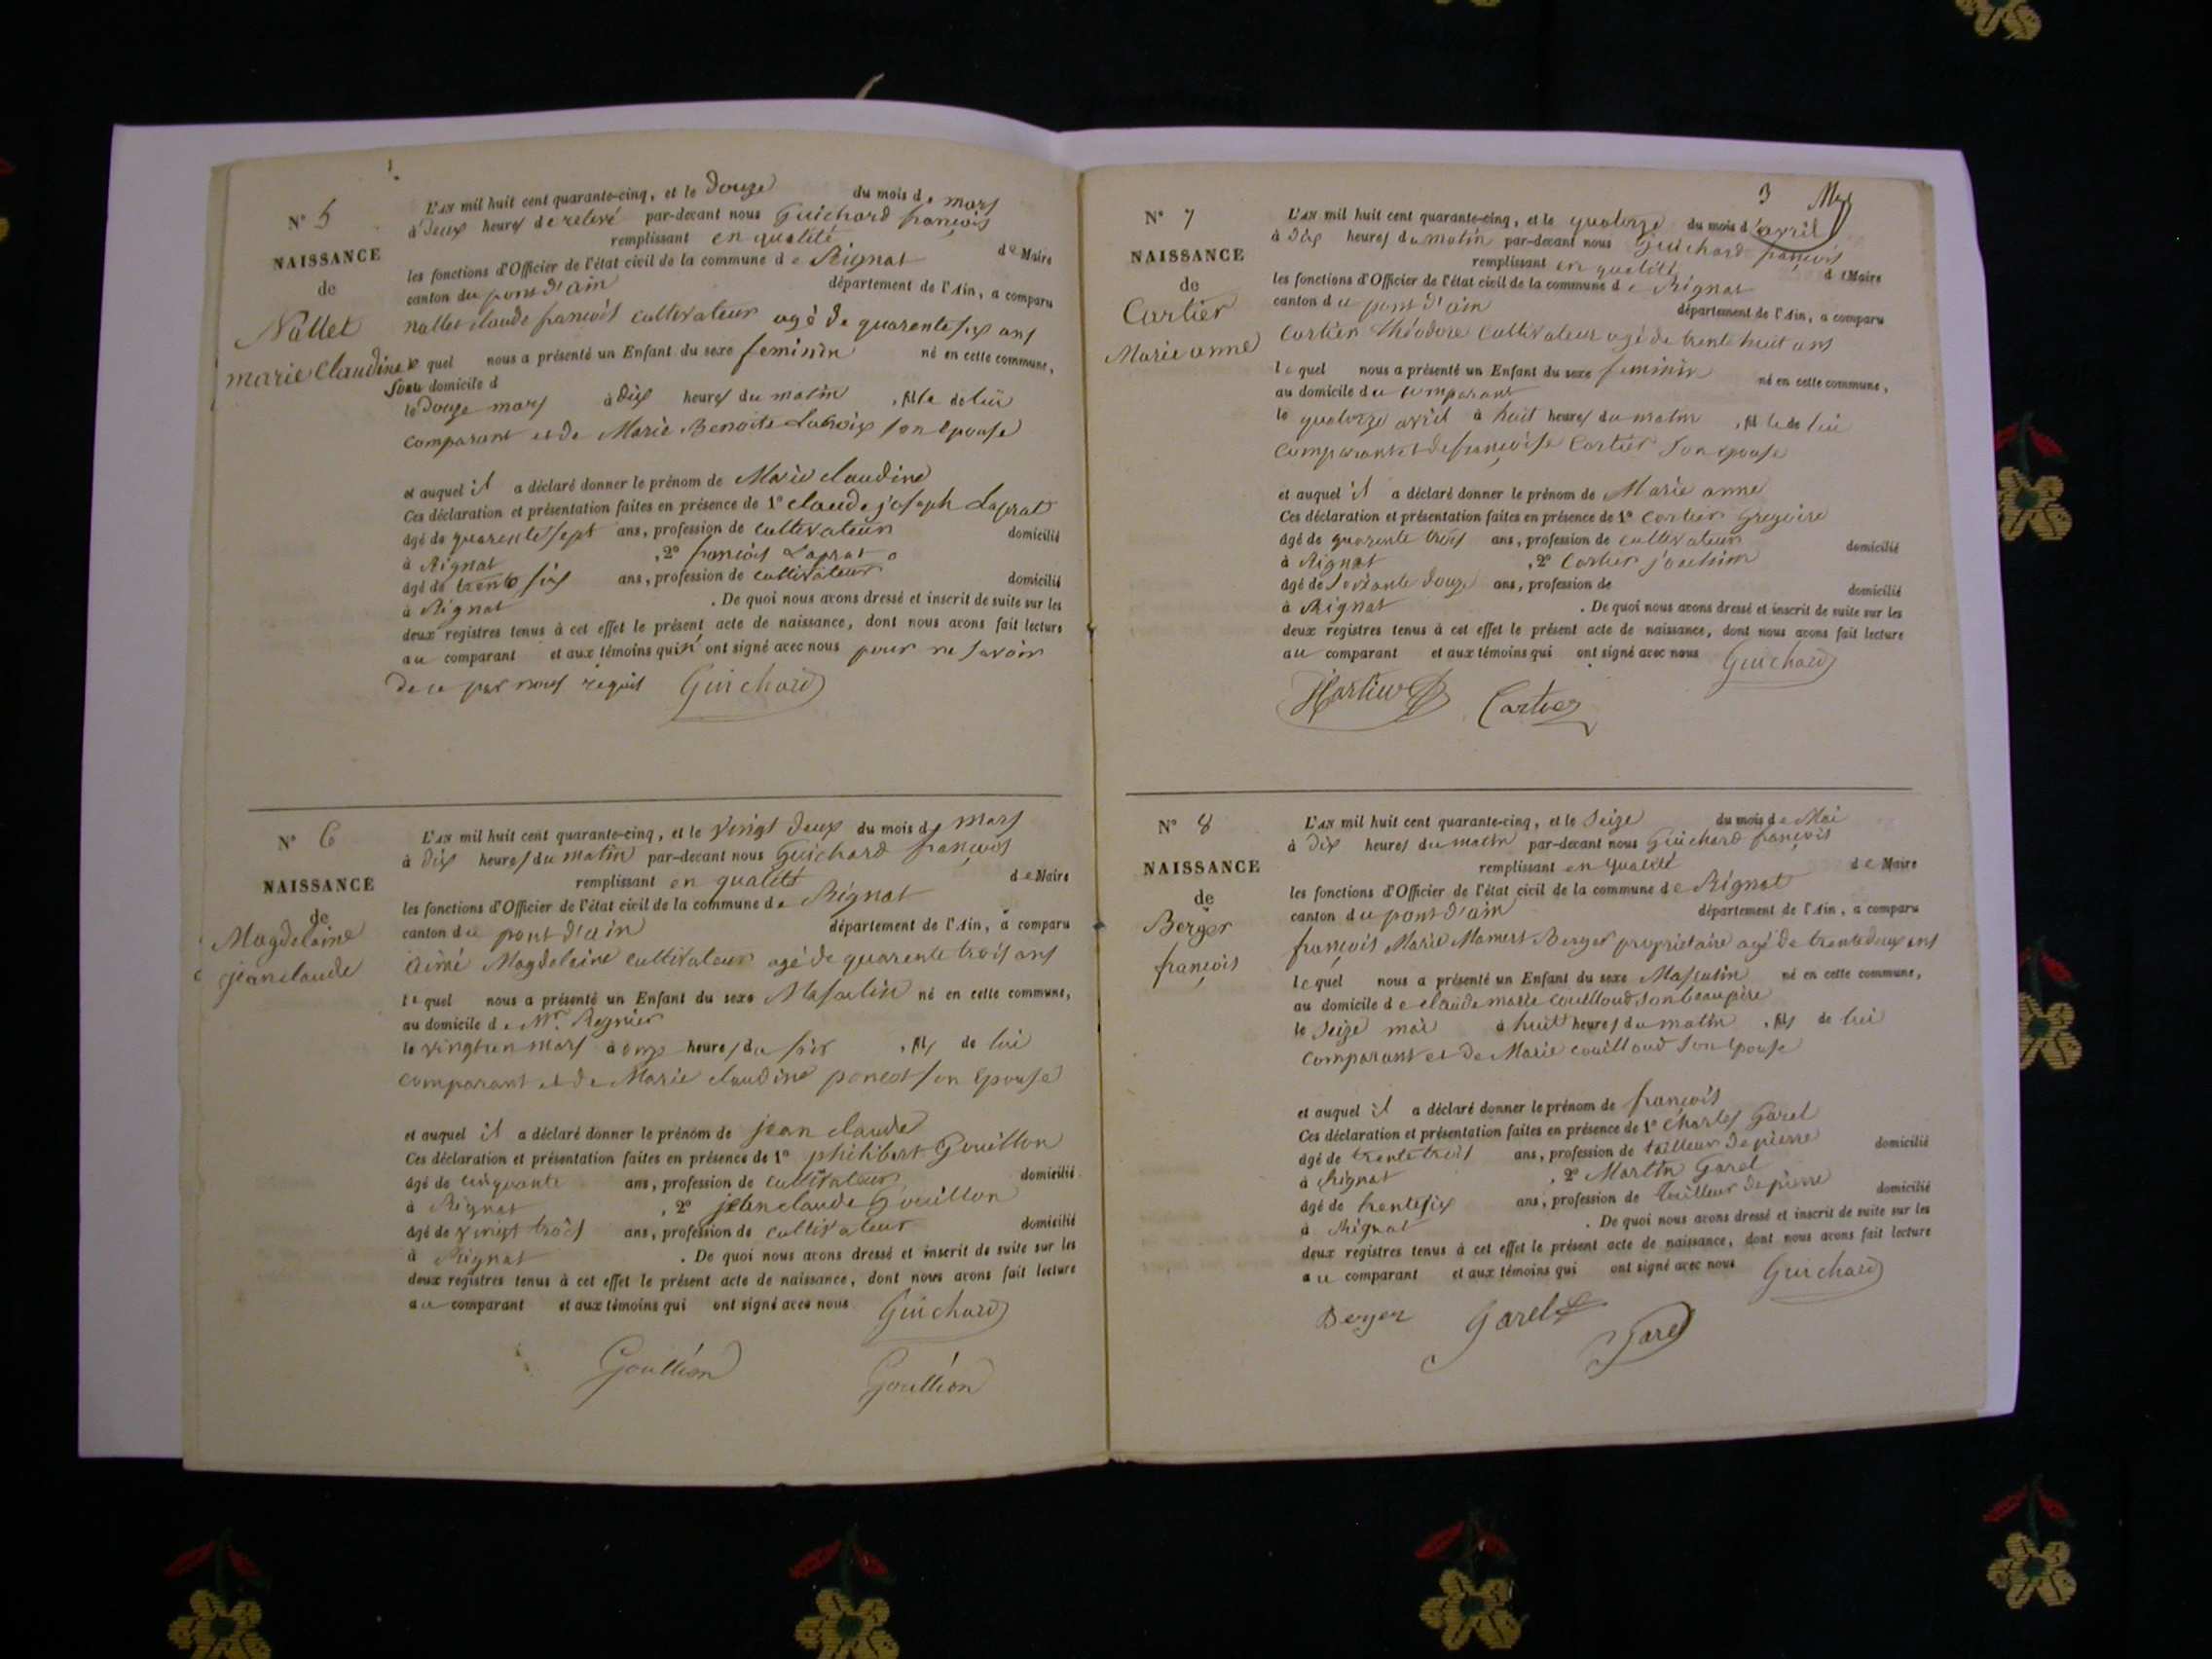 N° 5
NAISSANCE
de
Nallet
marie Claudine
L'AN mil huit cent quarante-cinq, et le douze du mois de mars
à deux heures de relevé par-devant nous Guichard françois
remplissant en qualité de Maire
les fonctions d'Officier de l'état civil de la commune de Rignat
canton du pont d'ain département de l'Ain, a comparu
nallet claude francois cultivateur agé de quarente six ans
le quel nous a présenté un Enfant du sexe feminin né en cette commune,
domicile d
le douze mars à dix heures du matin , fille de lui
comparant et de Marie Benoite Lacroix son épouse
et auquel il a déclaré donner le prénom de Marie claudine
Ces déclaration et présentation faites en présence de 1° claude joseph Laprat
âgé de quarente sept ans, profession de cultivateur domicilié
à Rignat , 2° francois Laprat
âgé de trente six ans, profession de cultivateur domicilié
à Rignat . De quoi nous avons dressé et inscrit de suite sur les
deux registres tenus à cet effet le présent acte de naissance, dont nous avons fait lecture
au comparant et aux témoins qui n' ont signé avec nous pour ne savoir
de ce par nous requis Guichard
N° 6
NAISSANCE
de
Magdelaine
jean claude
L'AN mil huit cent quarante-cinq, et le vingt deux du mois de mars
à dix heures du matin par-devant nous Guichard françois
remplissant en qualité de Maire
les fonctions d'Officier de l'état civil de la commune de Rignat
canton du pont d'ain département de l'Ain, a comparu
aimé Magdelaine cultivateur agé de quarente trois ans
le quel nous a présenté un Enfant du sexe Masculin né en cette commune,
au domicile de Mr. Regnier
le vingt un mars à onze heures du soir , fils de lui
comparant et de Marie claudine poncet son épouse
et auquel il a déclaré donner le prénom de jean claude
Ces déclaration et présentation faites en présence de 1° philibert Gouillon
âgé de cinquante ans, profession de cultivateur domicilié
à Rignat , 2° jean claude Gouillon
âgé de vingt trois ans, profession de cultivateur domicilié
à Rignat . De quoi nous avons dressé et inscrit de suite sur les
deux registres tenus à cet effet le présent acte de naissance, dont nous avons fait lecture
au comparant et aux témoins qui ont signé avec nous Guichard
Goullion Goullion
3
N° 7
NAISSANCE
de
Cartier
Marie anne
L'AN mil huit cent quarante-cinq, et le quatorze du mois d'avril
à dix heures du matin par-devant nous Guichard françois
remplissant en qualité de Maire
les fonctions d'Officier de l'état civil de la commune de Rignat
canton du pont d'ain département de l'Ain, a comparu
Cartier théodore Cultivateur agé de trente huit ans
le quel nous a présenté un Enfant du sexe feminin né en cette commune,
au domicile du comparant
le quatorze avril à huit heures du matin , fille de lui
comparant et de françoise Cartier son épouse
et auquel il a déclaré donner le prénom de Marie anne
Ces déclaration et présentation faites en présence de 1° Cartier Gregoire
âgé de quarente trois ans, profession de cultivateur domicilié
à Rignat , 2° Cartier joachim
âgé de soixante douze ans, profession de domicilié
à Rignat . De quoi nous avons dressé et inscrit de suite sur les
deux registres tenus à cet effet le présent acte de naissance, dont nous avons fait lecture
au comparant et aux témoins qui ont signé avec nous Guichard
Cartier
N° 8
NAISSANCE
de
Berger
françois
L'AN mil huit cent quarante-cinq, et le Seize du mois de Mai
à dix heures du matin par-devant nous Guichard françois
remplissant en qualité de Maire
les fonctions d'Officier de l'état civil de la commune de Rignat
canton du pont d'ain département de l'Ain, a comparu
françois Marie Mamert Berger propriétaire agé de trente deux ans
le quel nous a présenté un Enfant du sexe Masculin né en cette commune,
au domicile de claude marie couilloud son beau père
le Seize mai à huit heures du matin , fils de lui
comparant et de Marie couilloud son épouse
et auquel il a déclaré donner le prénom de françois
Ces déclaration et présentation faites en présence de 1° Charles Garel
âgé de trente trois ans, profession de tailleur de pierre domicilié
à Rignat , 2° Martin Garel
âgé de trente six ans, profession de tailleur de pierre domicilié
à Rignat . De quoi nous avons dressé et inscrit de suite sur les
deux registres tenus à cet effet le présent acte de naissance, dont nous avons fait lecture
au comparant et aux témoins qui ont signé avec nous Guichard
Berger Garel Garel